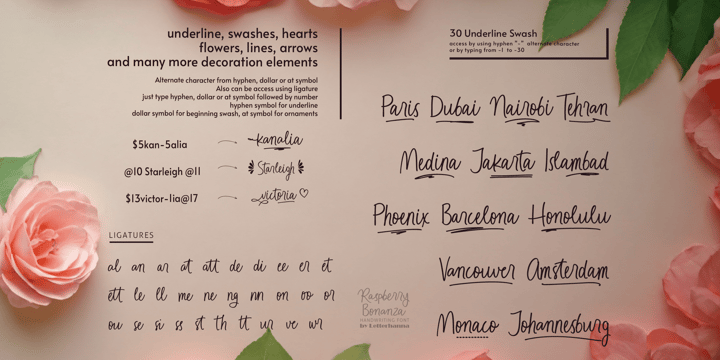 underline, swashes, hearts
flowers, lines, arrows
and many more decoration elements
Alternate character from hyphen, dollar or at symbol
Also can be access using ligature
just type hyphen, dollar or at symbol followed by number
hyphen symbol for underline
dollar symbol for beginning swash, at symbol for ornaments
$5kan-5alia kanalia
@10 Starleigh @11 Starleigh
$13victor-1ia@17 victoria
LIGATURES
al an ar at att de di ee er et
ett le ll me ne ng nn on oo or
ou se si ss st th tt ur ve wr
30 Underline Swash
access by using hyphen "-" alternate character
or by typing from -1 to -30
Paris Dubai Nairobi Tehran
Medina Jakarta Islambad
Phoenix Barcelona Honolulu
Vancouver Amsterdam
Monaco Johannesburg
Raspberry
Bonanza
HANDWRITING FONT